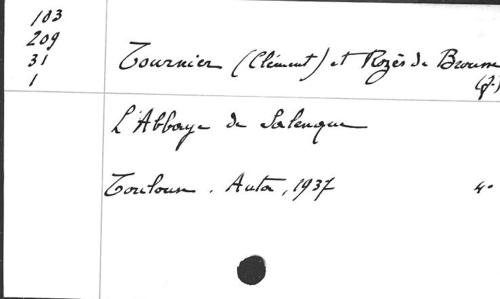 103
209
31
1
Tournier (Clément) et Rozès de Brousse
(J.)
L'Abbaye de Salenque
Toulouse. Auta, 1937 4°